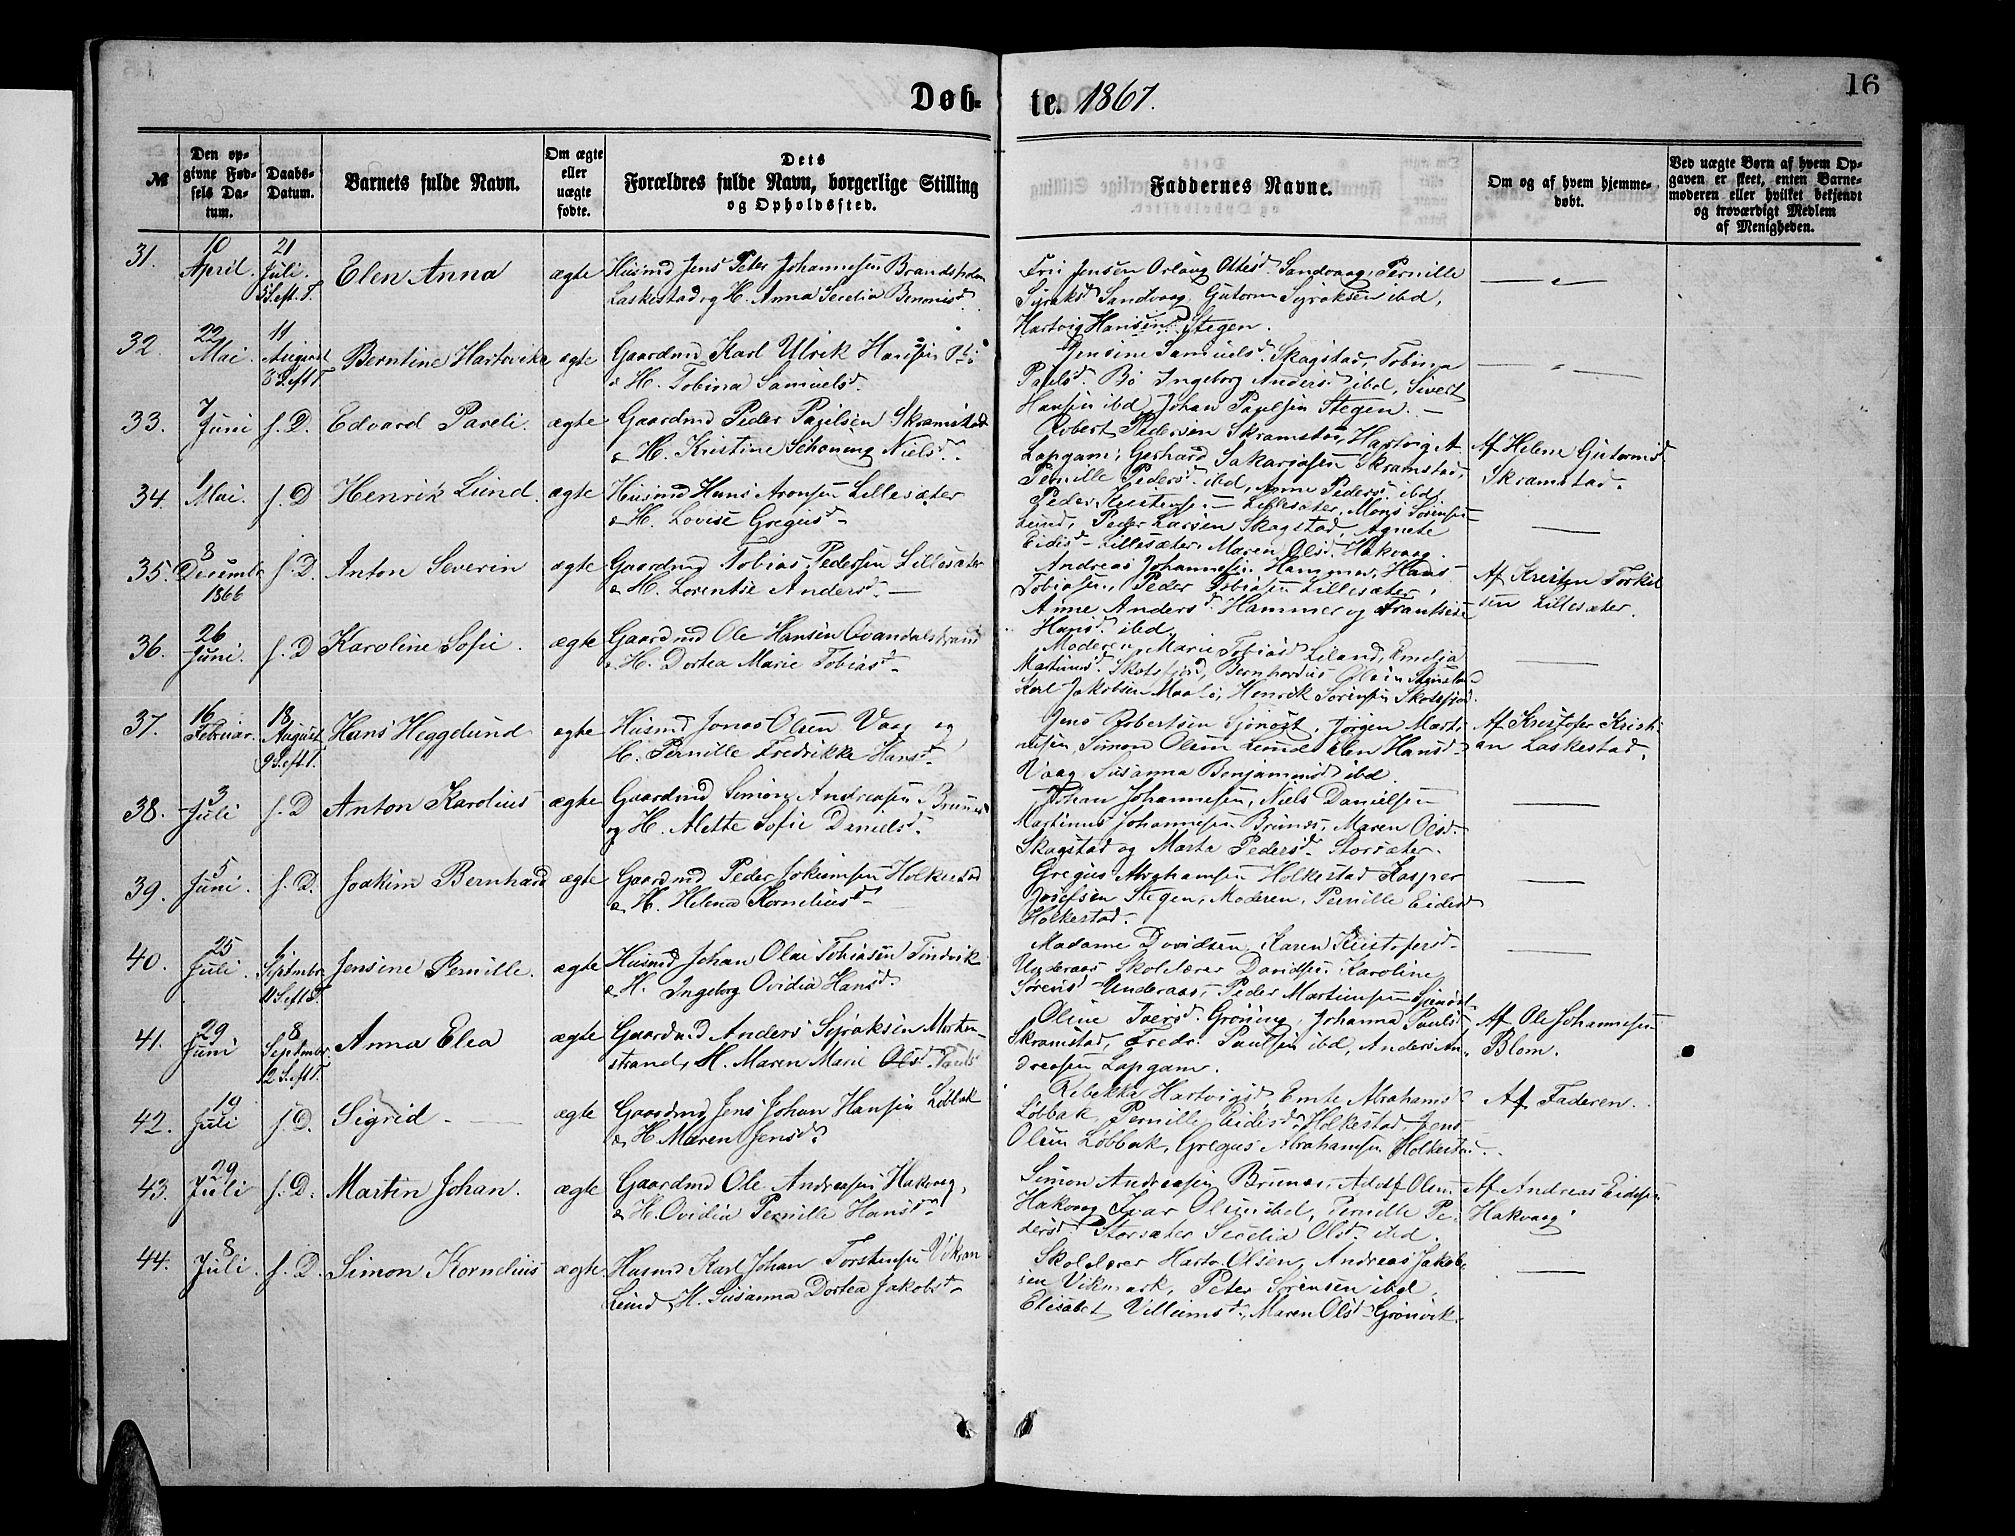 16
Døb-
te. 1867.
№
Den op-
givne Fød-
sels Da-
tum.
Daabs-
Datum.
Barnets fulde Navn.
Om ægte
eller
uægte
fødte.
Dets
Forældres fulde Navn, borgerlige Stilling
og Opholdssted.
Faddernes Navne.
Om og af hvem hjemme-
døbt.
Ved uægte Børn af hvem Op-
gaven er skeet, enten Barne-
moderen eller hvilket bekjendt
og troværdigt Medlem
af Menigheden.
31.
10
April.
21
Juli.
5 S. eft. T.
Elen Anna
ægte
Husmd Jens Peter Johannesen
Laskestad og H. Anna Serelia
Jensen Orlaug Ottesd. Sandvaag, Pernille
Syraksd Sandvaag, Gutorm Syraksen ibd,
Hartvig Hansen Stegen.
32.
22
Mai.
11
August
8 S. eft T.
Berntine Hartvika
ægte
Gaardmd Karl Ulrik Hansen Bö
& H. Tobina Samuelsd.
Jensine Samuelsd. Skagstad, Tobina
Paulsd. Bö Ingeborg Andersd. ibd, Sivert
Hansen ibd, Johan Paulsen Stegen. —
33.
7
Juni
s. D.
Edvard Pareli.
ægte
Gaardmd Peder Paulsen Skramstad
& H. Kristine Schöning Nielsd.
Robert Pedersen Skramstad, Hartvig A.
Lapgam, Gerhard Sakariasen Skramstad,
Pernille Pedersd. ibd, Anne Pedersd. ibd,
Af Helene Gutormsd
Skramstad.
34.
1
Mai.
s. D
Henrik Lund.
ægte
Husmd Hans Aronsen Lillesæter
& H. Lovise Gregusd.
Peder Kristens. — Lillesæter, Mons Sörensen
Lund, Peder Larsen Skagstad, Agnete
Eidisd — Lillesæter, Maren Olsd. Hakvaag.
35.
8
Decembr
1866
s. D.
Anton Severin
ægte
Gaardmd Tobias Pedersen Lillesæter
& H. Lorentse Andersd. —
Andreas Johannesen Hammer, Hans
Tobiasen, Peder Tobiasen Lillesæter,
Anne Andersd. Hammer og Frantsise
Hansd. ibd.
Af Kristen Torkil
sen Lillesæter.
36.
26
Juni.
s. D
Karoline Sofie.
ægte
Gaardmd Ole Hansen
& H. Dortea Marie Tobiasd.
Moderen, Marie Tobiasd Liland, Emelia
Martinusd. Skotsfjord, Bernhardus Olsen
Karl Jakobsen Maalö, Henrik Sörensen Skotsfjord.
37.
16
Februar.
18
August
9 S. eft T.
Hans Heggelund
ægte
Husmd Jonas Olsen Vaag og
H. Pernille Fredrikke Hansd.
Jens Robertsen, Jörgen Marti-
nusen, Simon Olsen Lund Elen Hansd.
Vaag Susanna Benjaminsd ibd.
Af Kristofer Kristi-
an Laskestad.
38.
3
Juli
s. D
Anton Karolius
ægte
Gaardmd Simon Andreasen Brunes
og H. Alette Sofie Danielsd.
Johan Johannesen, Niels Danielsen
Martinus Johannesen Brunes, Maren Olsd.
Skagstad og Marta Pedersd. Storsæter.
39.
5
Juni.
s. D.
Joakim Bernhard
ægte
Gaardmd Peder Jokumsen Holkestad
& H. Helena Korneliusd.
Gregus Abrahamsen Holkestad Kasper
Josefsen Stegen, Moderen, Pernille Eidisd
Holkestad.
40.
25
Juli.
1
Septmbr.
11 S. eft T.
Jensine Pernille.
ægte
Husmd Johan Olai Tobiasen Tindvik
& H. Ingeborg Ovidia Hansd.
Madame Davidsen, Karen Kristofersd.
Underaas Skolelærer Davidsen, Karoline
Sörensd Underaas, Peder Martinusen
41.
29
Juni
8
Septmbr.
12 S. eft T.
Anna Elea
ægte
Gaardmd Anders Syraksen Morten-
strand, H. Maren Marie Olsd. Paulsd
Oline Gröning, Johanna Paulsd
Skramstad, Fredr. Paulsen ibd, Anders An-
dreasen Lapgam.
Af Ole Johannesen
Blom.
42.
19
Juli
s. D.
Sigrid
ægte
Gaardmd Jens Johan Hansen Löbbak
& H. Maren Jensd.
Rebekka Hartvigsd, Abrahamsd.
Löbbak, Pernille Eidisd. Holkestad, Jens
Olsen Löbbak, Gregus Abrahamsen Holkestad.
Af Faderen.
43.
29
Juli
s. D.
Martin Johan.
ægte
Gaardmd Ole Andreasen Hakvaag,
& H. Ovidia Pernille Hansd.
Simon Andreasen Brunes, Adolf Olsen
Hakvaag Ivar Olsen ibd, Pernille Pe-
dersd Storsæter Serelia Olsd. ibd.
Af Andreas Eidisen
Hakvaag.
44.
8
Juli.
s. D.
Simon Kornelius
ægte
Husmd Karl Johan Torstensen
Lund, H. Susanna Dortea Jakobsd.
Skolelærer Hartv. Olsen, Andreas Jakob-
sen Vikmark, Peter Sörensen ibd,
Elisabet Villumsd., Maren Olsd Grönvik.